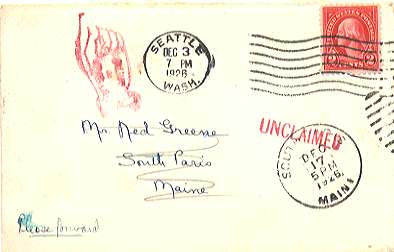 SEATTLE
DEC 3
7 PM
1926
WASH.
UNCLAIMED
Mr. Ned Greene
South Paris
Maine
DEC
17
5 PM
1926
Please forward